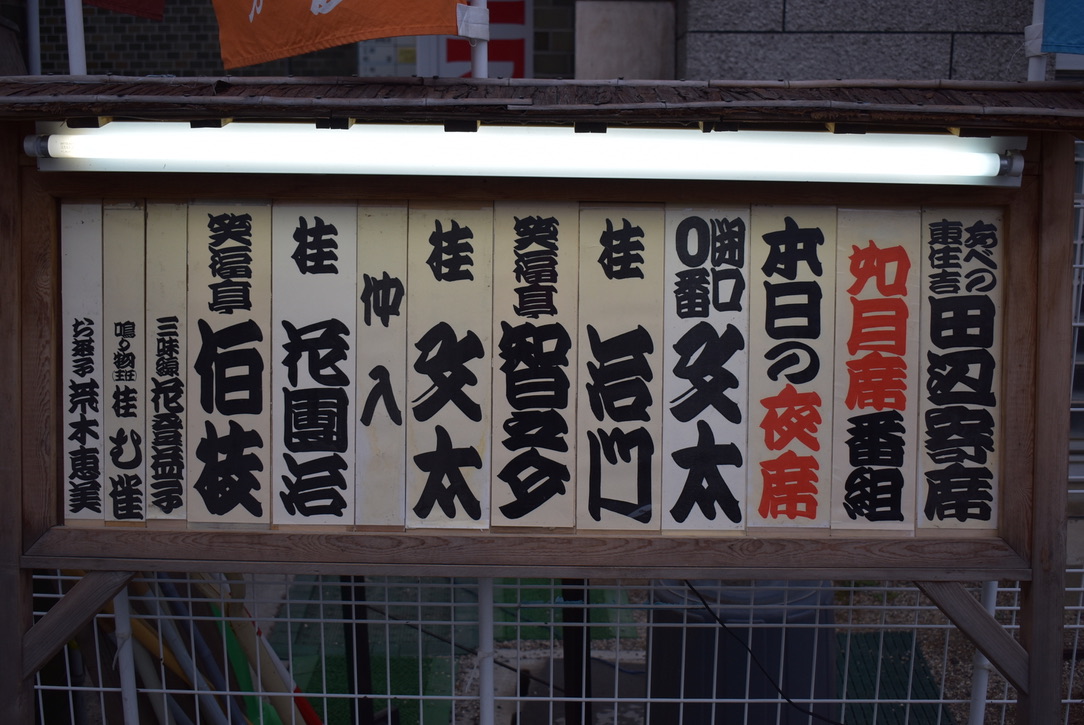 あべの
東住吉
田辺寄席
席番組
本日の夜席
開口
0番
文太
桂 治門
笑福亭 智之介
桂 文太
仲入
桂 花團治
笑福亭 伯枝
三味線 花登益子
鳴り物 桂 む雀
お茶子 荒木恵美